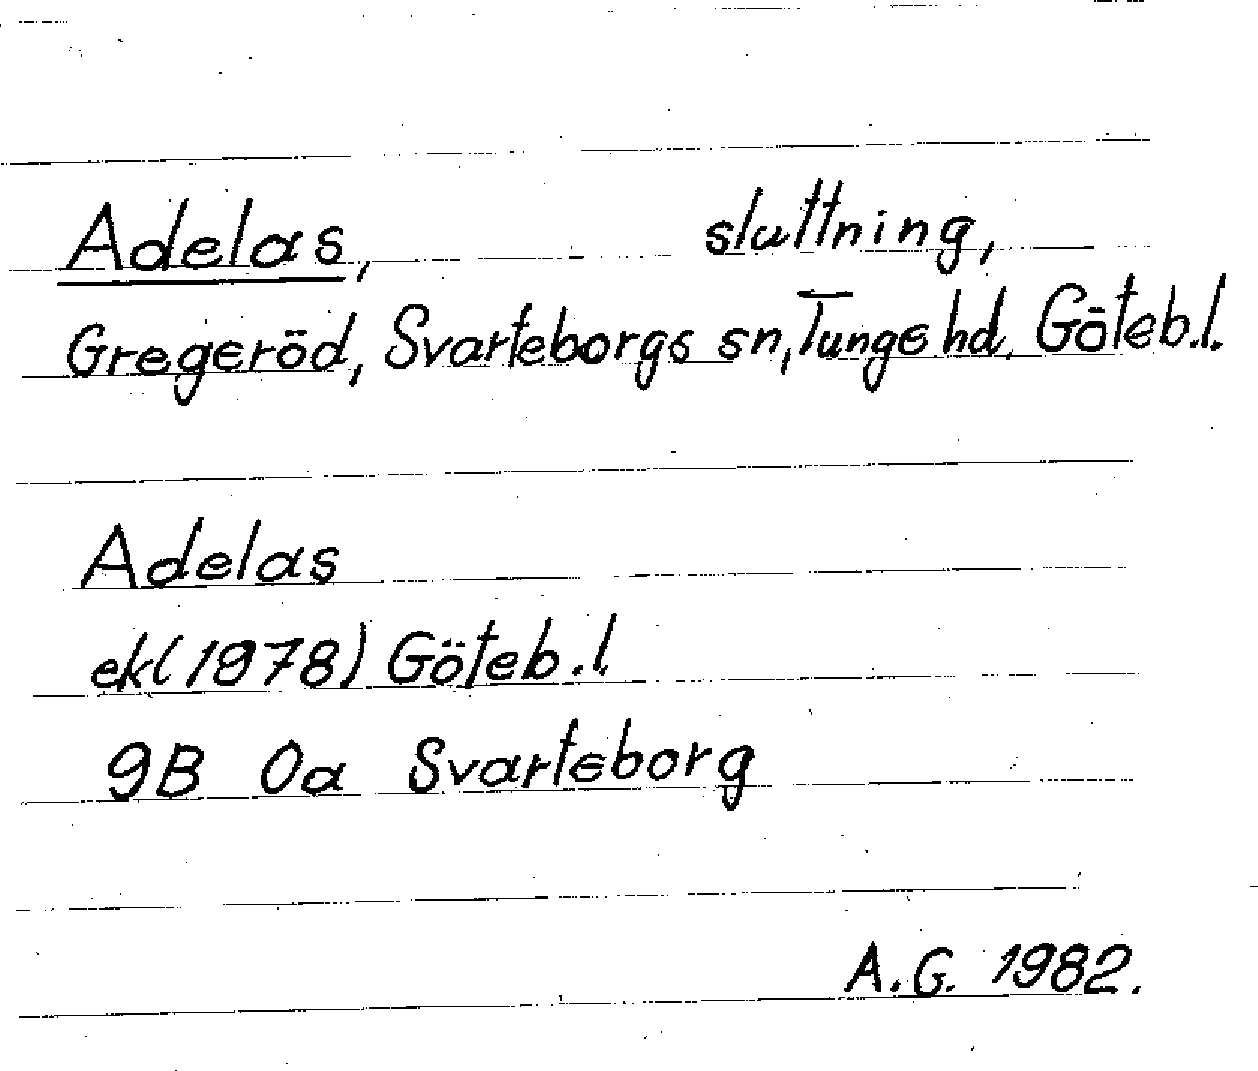 Adelas, sluttning,
Gregeröd, Svarteborgs sn, Tunge hd, Göteb.l.
Adelas
ek (1978) Göteb.l.
9B 0a Svarteborg
A.G. 1982.